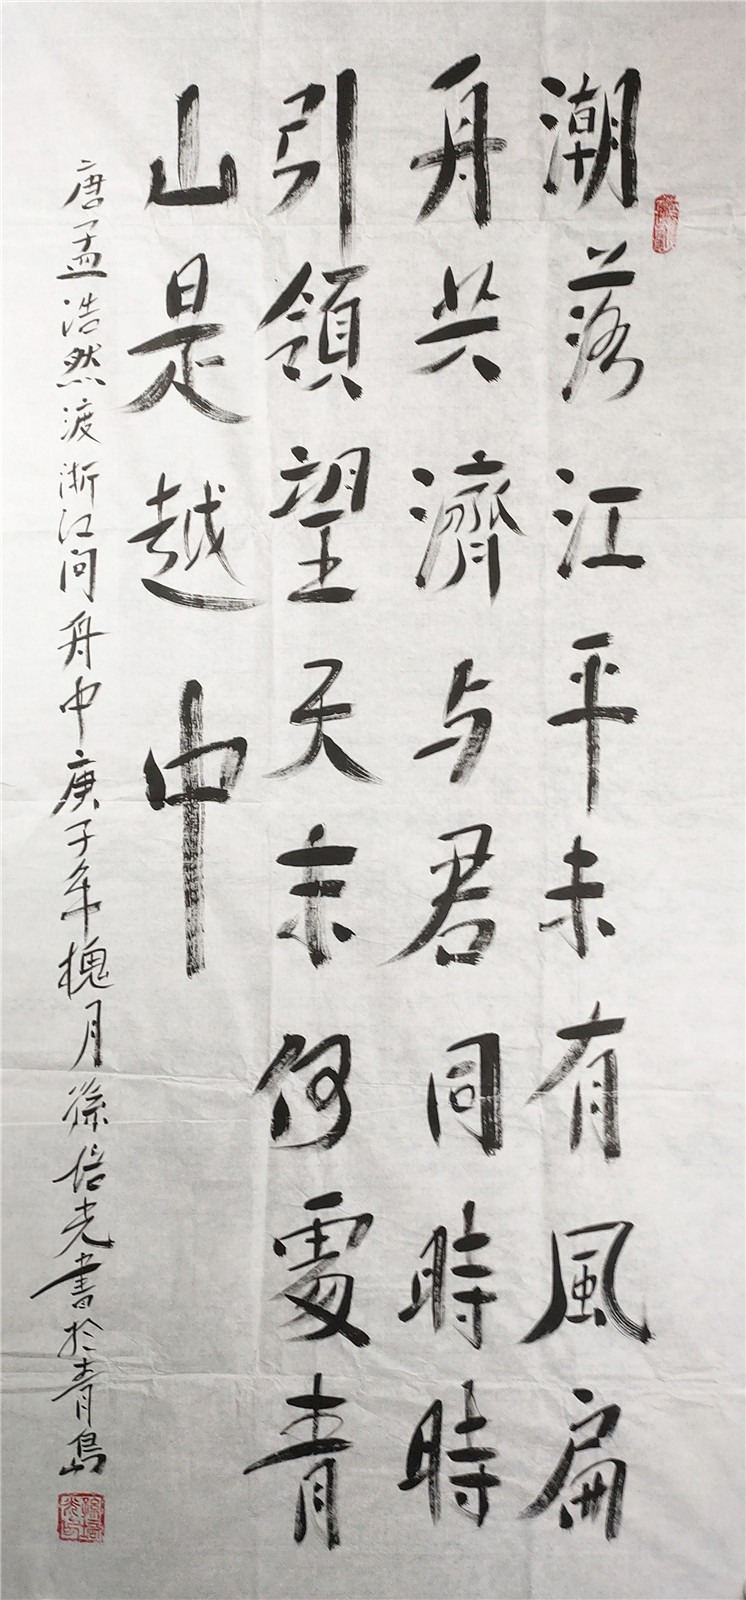 潮落江平未有風扁
舟共濟与君同時時
引領望天末何處青
山是越中
唐孟浩然渡浙江问舟中庚子年槐月孫培光書於青島